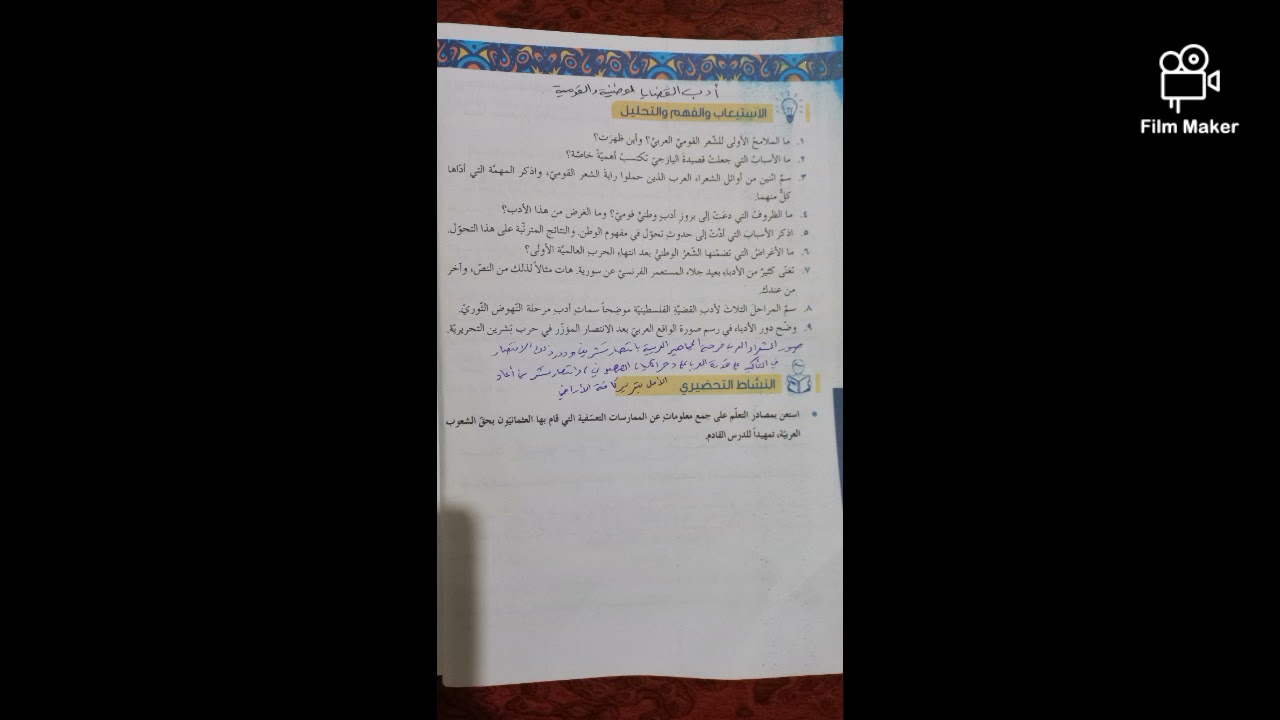 أدب القضايا الوطنية والقومية
الاستيعاب والفهم والتحليل
١. ما الملامحُ الأولى للشّعر القوميّ العربيّ؟ وأين ظهرَت؟
٢. ما الأسبابُ التي جعلتْ قصيدةَ اليازجيّ تكتسبُ أهميّةً خاصّة؟
٣. سمِّ اثنين من أوائل الشعراء العرب الذين حملوا رايةَ الشعر القوميّ، واذكر المهمَّة التي أدّاها
كلٌّ منهما.
٤. ما الظروفُ التي دعَتْ إلى بروزِ أدبٍ وطنيٍّ قوميّ؟ وما الغرض من هذا الأدب؟
٥. اذكر الأسبابَ التي أدَّتْ إلى حدوثِ تحوّل في مفهوم الوطن، والنتائج المترتّبة على هذا التحوّل.
٦. ما الأغراضُ التي تضمّنها الشّعرُ الوطنيُّ بعد انتهاءِ الحربِ العالميَّة الأولى؟
٧. تغنّى كثيرٌ من الأدباءِ بعيد جلاء المستعمر الفرنسيّ عن سورية. هات مثالاً لذلك من النصّ، وآخر
من عندك.
٨. سمِّ المراحلَ الثلاث لأدبِ القضيَّةِ الفلسطينيّة موضحاً سماتِ أدبِ مرحلة النّهوض الثّوريّ.
٩. وضّح دور الأدباء في رسم صورة الواقع العربيّ بعد الانتصار المؤزّر في حرب تشرين التحريريّة.
صور الشعراء العرب فرحة الجماهير العربية بانتصار تشرين ودور ذلك الانتصار
في التأكيد على قدرة العرب على دحر الكيان الصهيوني، وانتصار تشرين أعاد
الأمل بتحرير كافة الأراضي
النشاط التحضيري
* استعن بمصادر التعلّم على جمع معلوماتٍ عن الممارسات التعسّفية التي قام بها العثمانيّون بحقّ الشعوب
العربيّة، تمهيداً للدرس القادم.
Film Maker